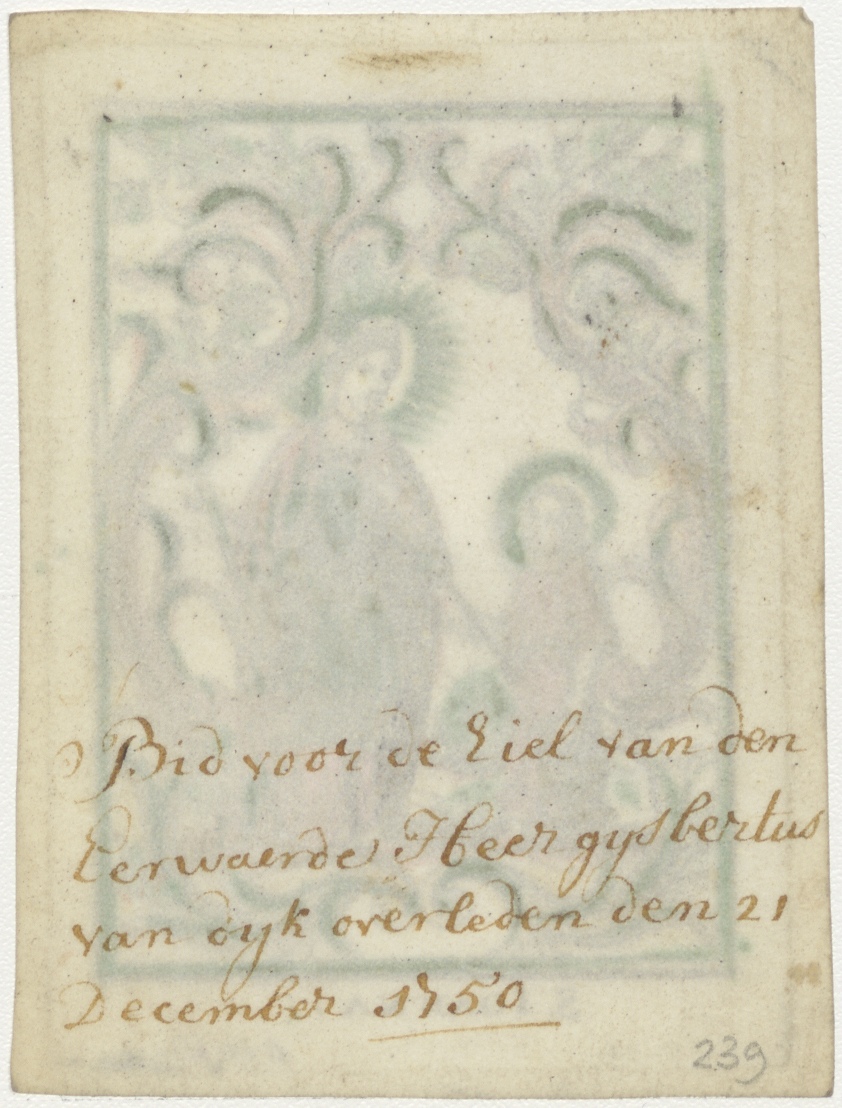 Bid voor de Ziel van den
Eerwaerde Heer gysbertus
van dyk overleden den 21
December 1750
239